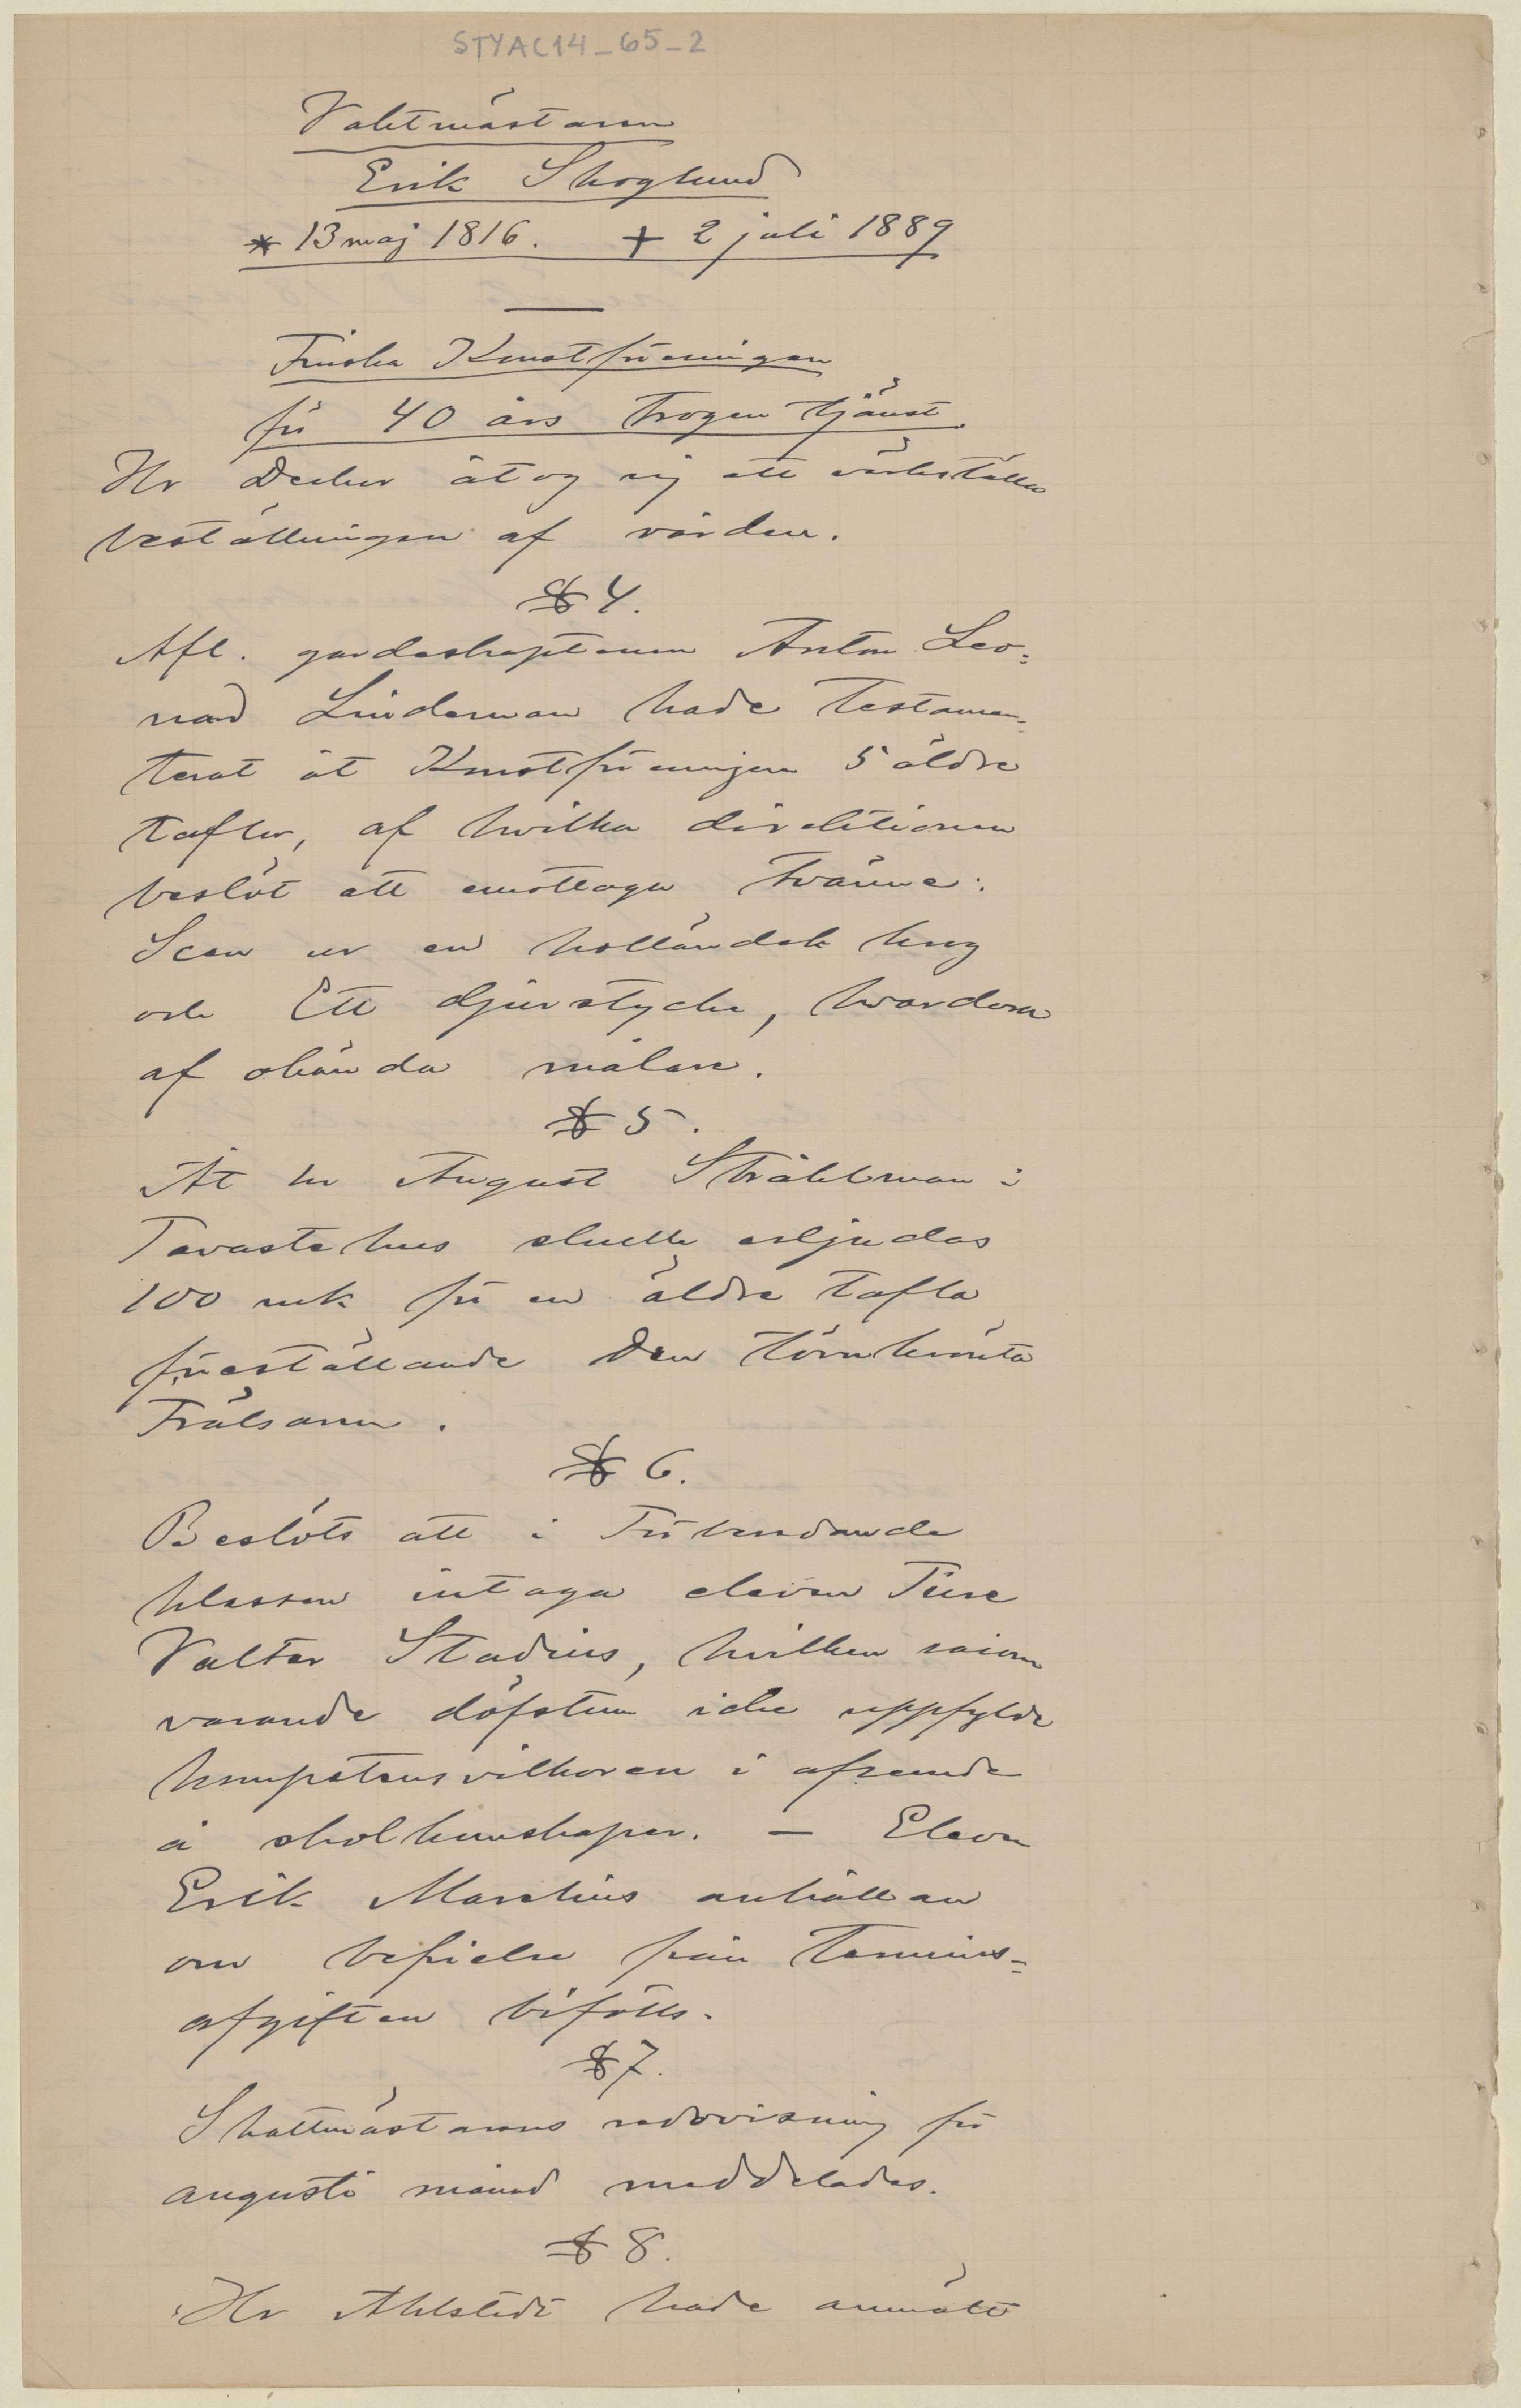 STYAC14_65_2
Vaktmästaren
Erik Skoglund
* 13 maj 1816. + 2 juli 1889
Finska Konstföreningen
för 40 års trogen tjänst.
Hr Decker åtog sig att värkställa
beställningen af vården.
§ 4.
Afl. gardeskaptenen Anton Leo-
nard Lindeman hade testamen-
terat åt Konstföreningen 5 äldre
taflor, af hvilka direktionen
beslöt att emottaga tvänne:
Scen ur en holländsk krog
och Ett djurstycke, hvardera
af okända målare.
§ 5.
Åt hr August Stråhlman i
Tavastehus skulle erbjudas
100 mk för en äldre tafla
föreställande Den törnkrönta
Frälsaren.
§ 6.
Beslöts att i Förberedande
klassen intaga eleven Ture
Valter Stadius, hvilken såsom
varande döfstum icke uppfylde
kompetensvilkoren i afseende
å skolkunskaper. — Eleven
Erik Marelius anhållan
om befrielse från termins-
afgiften bifölls.
§ 7.
Skattmästarens redovisning för
augusti månad meddelades.
§ 8.
Hr Ahlstedt hade anmält